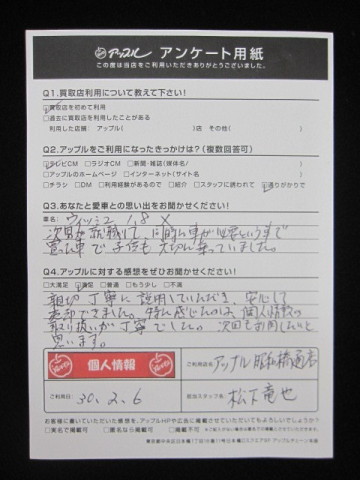 アップル アンケート用紙
この度は当店をご利用いただきありがとうございました。
Q1.買取店利用について教えて下さい!
買取店を初めて利用
□過去に買取店を利用したことがある
利用した店舗: アップル( )店 その他( )
Q2.アップルをご利用になったきっかけは?(複数回答可)
テレビCM □ラジオCM □新聞・雑誌(媒体名 )
□アップルのホームページ □インターネット(サイト名 )
□チラシ □DM □利用経験があるので □紹介 □スタッフに誘われて 通りがかりで
Q3.あなたと愛車との思い出をお聞かせください!
車名: ウィッシュ 1.8 X
次男が就職して、目的に車が必要というまで
買った車で 子供も 大切に乗っていました。
Q4.アップルに対する感想をぜひお聞かせください!
□大満足 満足 □普通 □もう少し □不満
親切 丁寧に 説明していただき、安心して
売却できました。特に感じたのは、個人情報の
取り扱いが丁寧でした。次回もお願いしたいと
思います。
個人情報
ご利用店名: アップル 昭和橋通店
ご利用日: 30.2.6
担当スタッフ名: 松下竜也
お客様に書いていただいた感想を、アップルHPや広告に掲載させていただいてもよろしいでしょうか?
□実名で掲載可 □匿名なら掲載可 □掲載不可